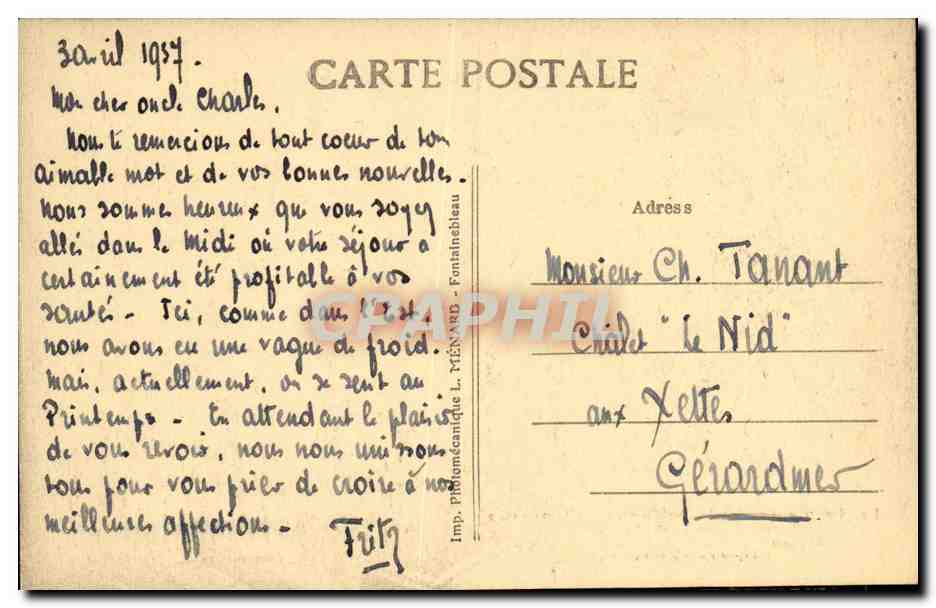 3 avril 1937.
Mon cher oncle Charles,
Nous te remercions de tout coeur de ton
aimable mot et de vos bonnes nouvelles.
Nous sommes heureux que vous soyez
allés dans le Midi où votre séjour a
certainement été profitable à vos
santés - Ici, comme dans l'Est,
nous avons eu une vague de froid.
Mais, actuellement, on se sent au
Printemps - En attendant le plaisir
de vous revoir, nous nous unissons
tous pour vous prier de croire à nos
meilleures affections -
Fritz
Imp. Photomécanique L. MÉNARD - Fontainebleau
CARTE POSTALE
Adress
Monsieur Ch. Tanant
Châlet "Le Nid"
aux Xettes
Gérardmer
CPAPHIL